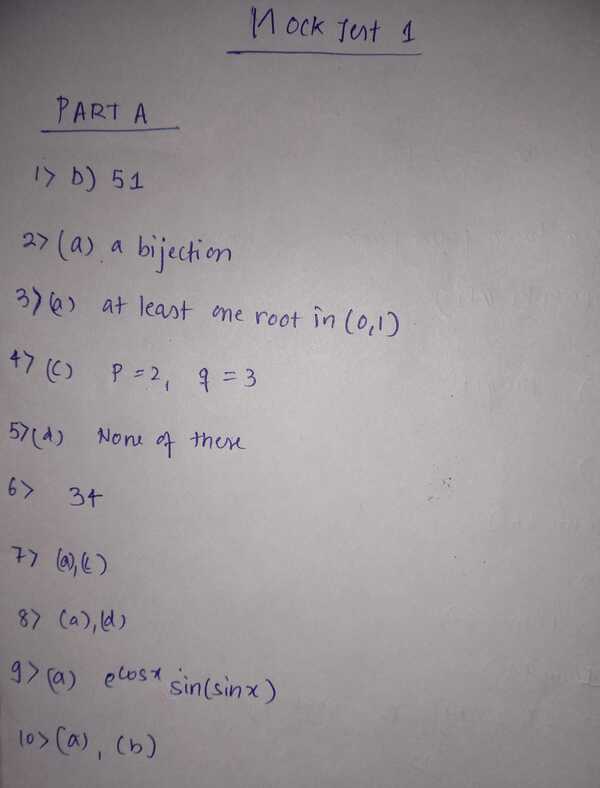 Mock Test 1
PART A
1> b) 51
2> (a) a bijection
3> (a) at least one root in (0,1)
4> (c) P = 2, q = 3
5> (d) None of these
6> 34
7> (a), (c)
8> (a), (d)
9> (a) e^cosx sin(sinx)
10> (a), (b)